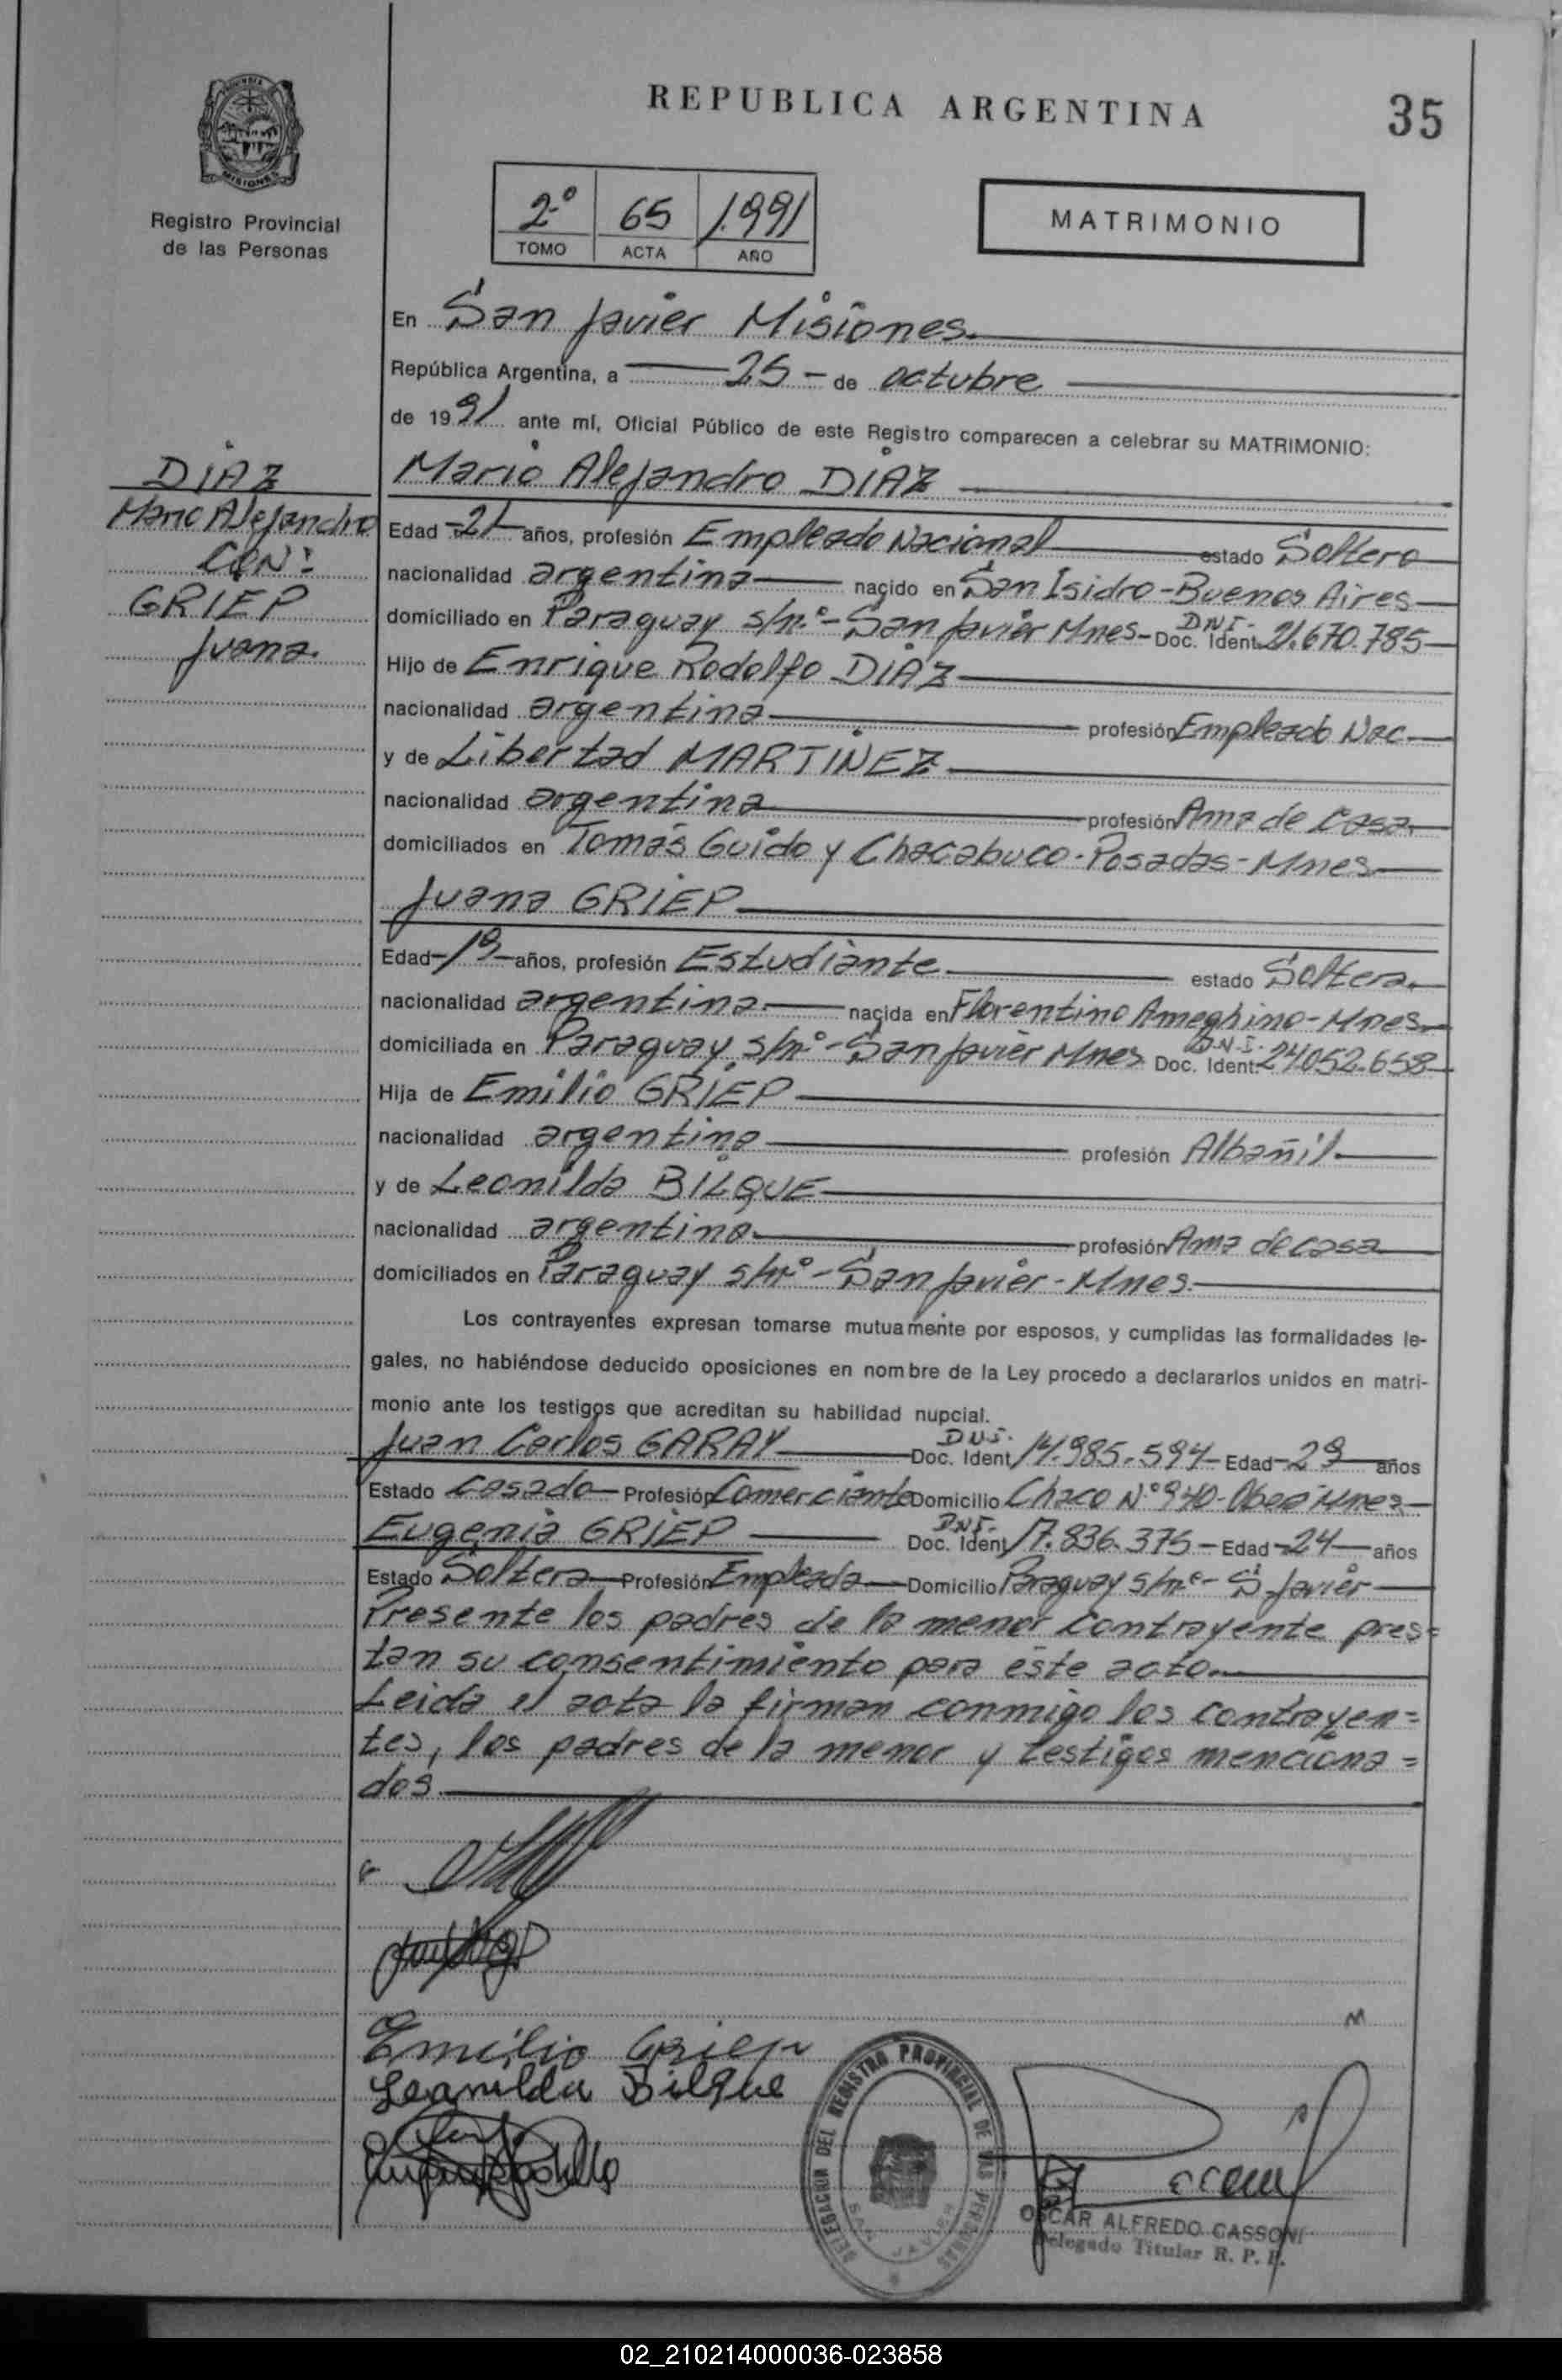 REPUBLICA ARGENTINA
35
MISIONES
Registro Provincial
de las Personas
2º 65 1.991
TOMO ACTA AÑO
MATRIMONIO
En San Javier Misiones.
República Argentina, a 25 - de octubre
de 1991 ante mí, Oficial Público de este Registro comparecen a celebrar su MATRIMONIO:
DIAZ
Mario Alejandro
CON:
GRIEP
Juana.
Mario Alejandro DIAZ
Edad -21- años, profesión Empleado Nacional estado Soltero
nacionalidad argentina nacido en San Isidro - Buenos Aires
domiciliado en Paraguay s/nº - San Javier Mnes - Doc. Ident. DNI- 21.670.785
Hijo de Enrique Rodolfo DIAZ
nacionalidad argentina profesión Empleado Nac.
y de Libertad MARTINEZ
nacionalidad argentina profesión Ama de Casa.
domiciliados en Tomás Guido y Chacabuco - Posadas - Mnes
Juana GRIEP
Edad -19- años, profesión Estudiante estado Soltera.
nacionalidad argentina nacida en Florentino Ameghino - Mnes
domiciliada en Paraguay s/nº - San Javier Mnes Doc. Ident. D.N.I. 24.052.658
Hija de Emilio GRIEP
nacionalidad argentina profesión Albañil
y de Leonilda BILQUE
nacionalidad argentina profesión Ama de casa
domiciliados en Paraguay s/nº - San Javier - Mnes.
Los contrayentes expresan tomarse mutuamente por esposos, y cumplidas las formalidades le-
gales, no habiéndose deducido oposiciones en nombre de la Ley procedo a declararlos unidos en matri-
monio ante los testigos que acreditan su habilidad nupcial.
Juan Carlos GARAY Doc. Ident. DNI. 14.985.594 - Edad - 29 años
Estado casado Profesión Comerciante Domicilio Chaco Nº 940 - Oberá Mnes
Eugenia GRIEP Doc. Ident. DNI- 17.836.375 - Edad - 24 años
Estado Soltera Profesión Empleada Domicilio Paraguay s/nº - S. Javier
Presente los padres de la menor contrayente pres=
tan su consentimiento para éste acto.
Leida el acta la firman conmigo los contrayen=
tes, los padres de la menor y testigos menciona=
dos.
Emilio Griep
Leonilda Bilque
DELEGACION DEL REGISTRO PROVINCIAL DE LAS PERSONAS
SAN JAVIER
OSCAR ALFREDO CASSONI
Delegado Titular R. P. P.
02_210214000036-023858